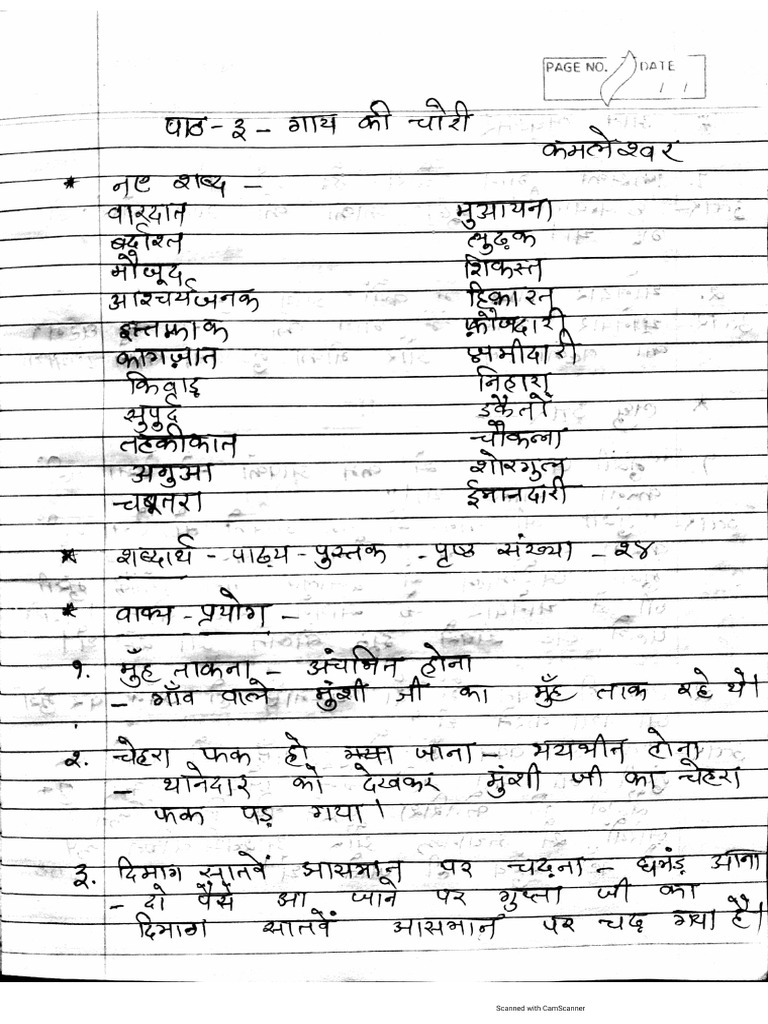 PAGE NO. DATE
/ /
पाठ - ३ - गाय की चोरी
कमलेश्वर
* नए शब्द -
वारदात मुआयना
बर्दाश्त लुढ़क
मौजूद शिकस्त
आश्चर्यजनक हिकारत
इत्तफ़ाक फ़ौजदारी
कागज़ात ज़मीदारी
किवाड़ निहारा
सुपुर्द डकैतों
तहकीकात चौकन्ना
अगुआ शोरगुल
चबूतरा ईमानदारी
* शब्दार्थ - पाठ्य - पुस्तक - पृष्ठ संख्या - २४
* वाक्य - प्रयोग -
१. मुँह ताकना - अचंभित होना
- गाँव वाले मुंशी जी का मुँह ताक रहे थे।
२. चेहरा फक हो जाना - भयभीत होना
- थानेदार को देखकर मुंशी जी का चेहरा
फक पड़ गया।
३. दिमाग सातवें आसमान पर चढ़ना - घमंड आना
- दो पैसे आ जाने पर गुप्ता जी का
दिमाग सातवें आसमान पर चढ़ गया है।
Scanned with CamScanner